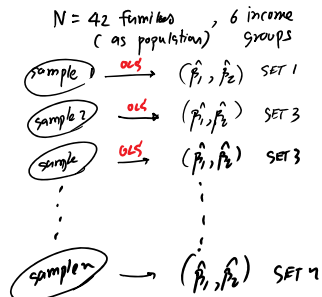 N = 42 families , 6 income
( as population) groups
sample 1 OLS (β̂₁, β̂₂) SET 1
sample 2 OLS (β̂₁, β̂₂) SET 3
sample OLS (β̂₁, β̂₂) SET 3
sample n (β̂₁, β̂₂) SET n